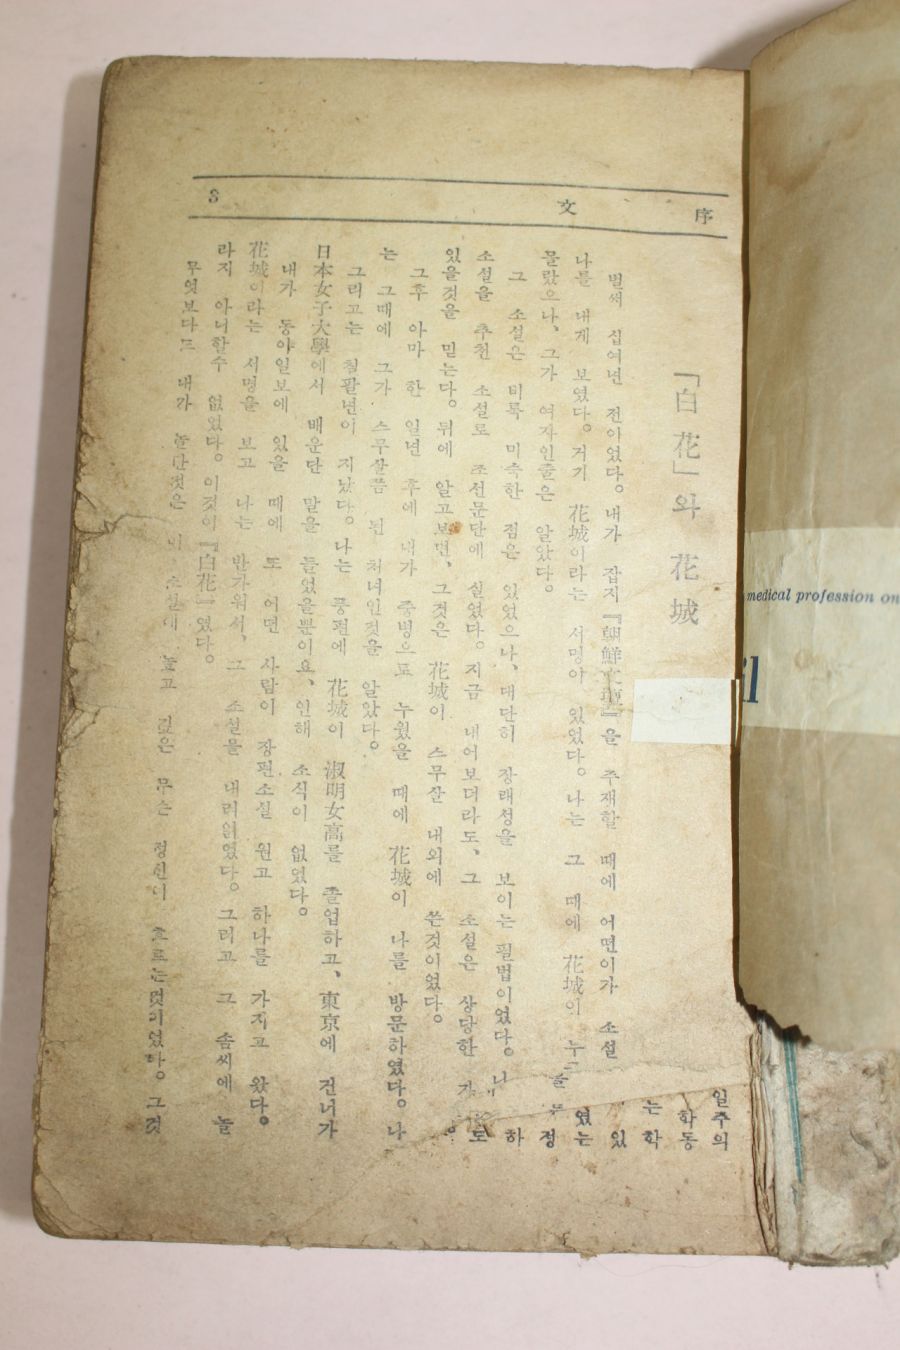 序 文 3
『白花』와 花城
벌새 십여년 전이었다。내가 잡지『朝鮮文壇』을 주재할 때에 어떤이가 소설
나를 내게 보였다。거기 花城이라는 서명이 있었다。나는 그 때에 花城이
몰랐으나、그가 여자인줄은 알았다。
그 소설은 비록 미숙한 점은 있었으나、대단히 장래성을 보이는 필법이었다。
소설을 추천 소설로 조선문단에 실었다。지금 내어보더라도、그 소설은 상당한
있을것을 믿는다。뒤에 알고보면、그것은 花城이 스무살 내외에 쓴것이었다。
그후 아마 한 일년 후에 내가 중병으로 누웠을 때에 花城이 나를 방문하였다。나
는 그때에 그가 스무살쯤 된 처녀인것을 알았다。
그리고는 칠팔년이 지났다。나는 풍편에 花城이 淑明女高를 졸업하고、東京에 건너가
日本女子大學에서 배운단 말을 들었을뿐이요、인해 소식이 없었다。
내가 동아일보에 있을 때에 또 어떤 사람이 장편소설 원고 하나를 가지고 왔다。
花城이라는 서명을 보고 나는 반가워서、그 소설을 내리읽었다。그리고 그 솜씨에 놀
라지 아니할수 없었다。이것이『白花』였다。
무엇보다도 내가 놀란것은 이 소설에 높고 깊은 무슨 정신이 흐르는것이였다。그것
일주의
학동
는 학
있
였는
정
하
도
medical profession on
il